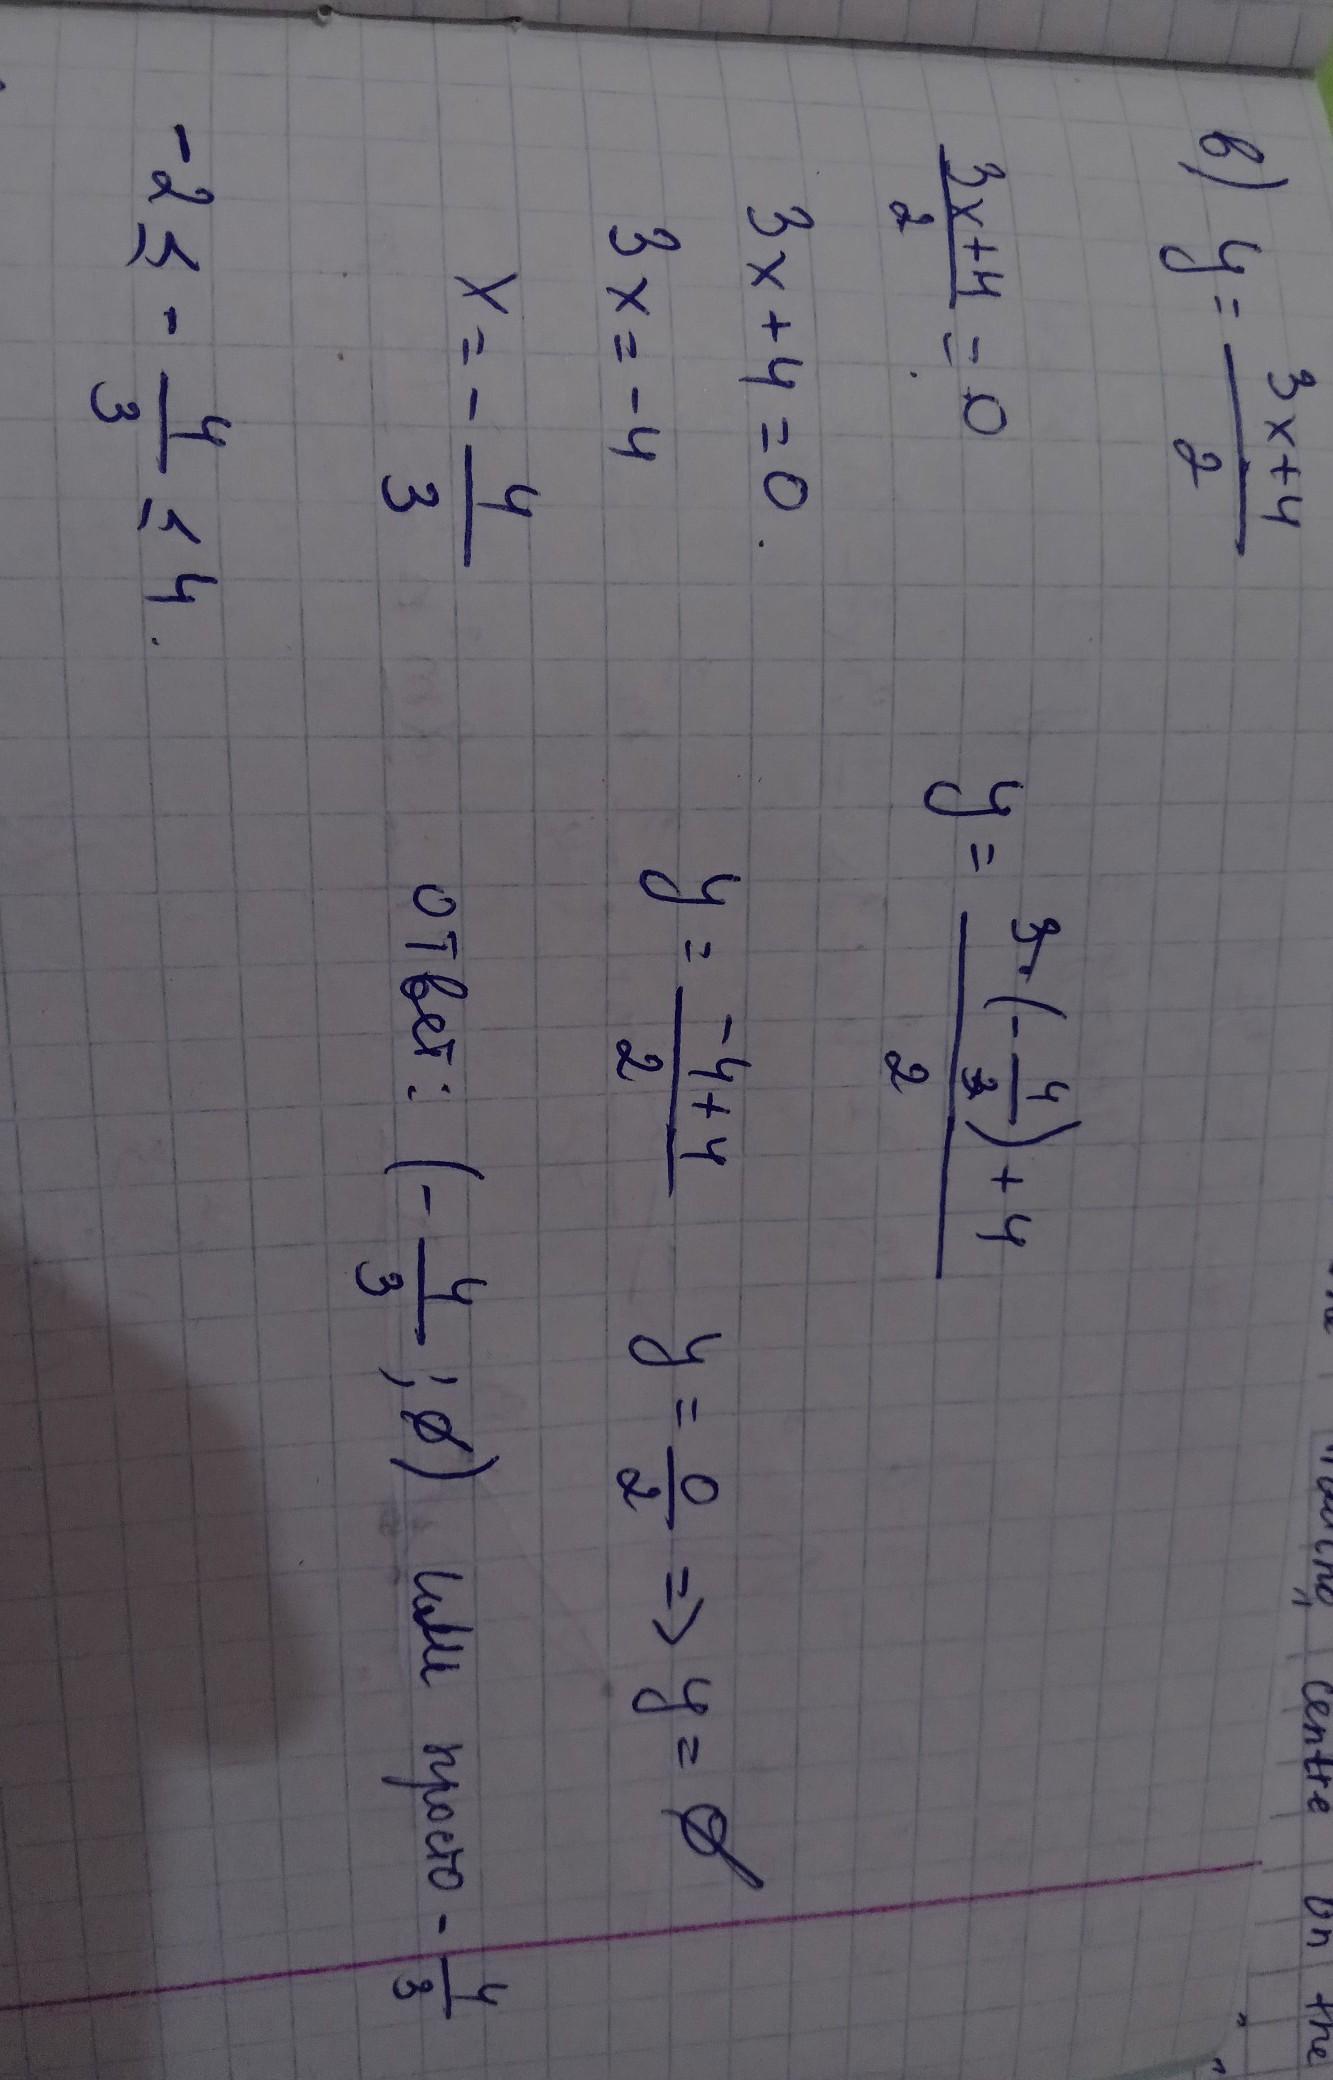 в) y = (3x+4)/2
(3x+4)/2 = 0
3x+4=0.
3x=-4
x=-4/3
-2≤-4/3≤4.
y = (3·(-4/3)+4)/2
y = (-4+4)/2 y = 0/2 => y = ∅
ответ: (-4/3; ∅) или просто -4/3
centre on the